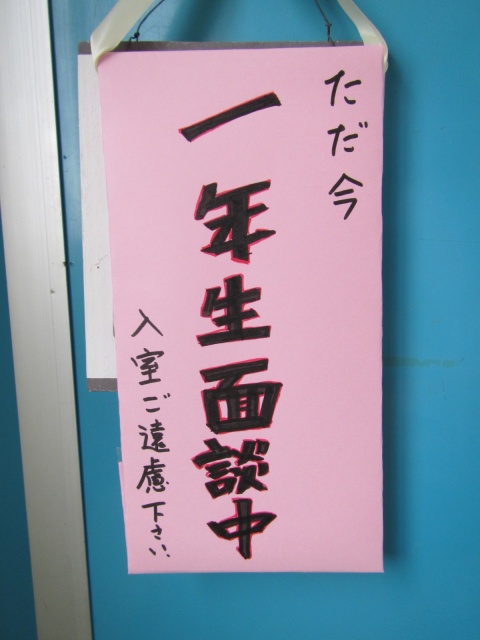 ただ今
一年生面談中
入室ご遠慮下さい。